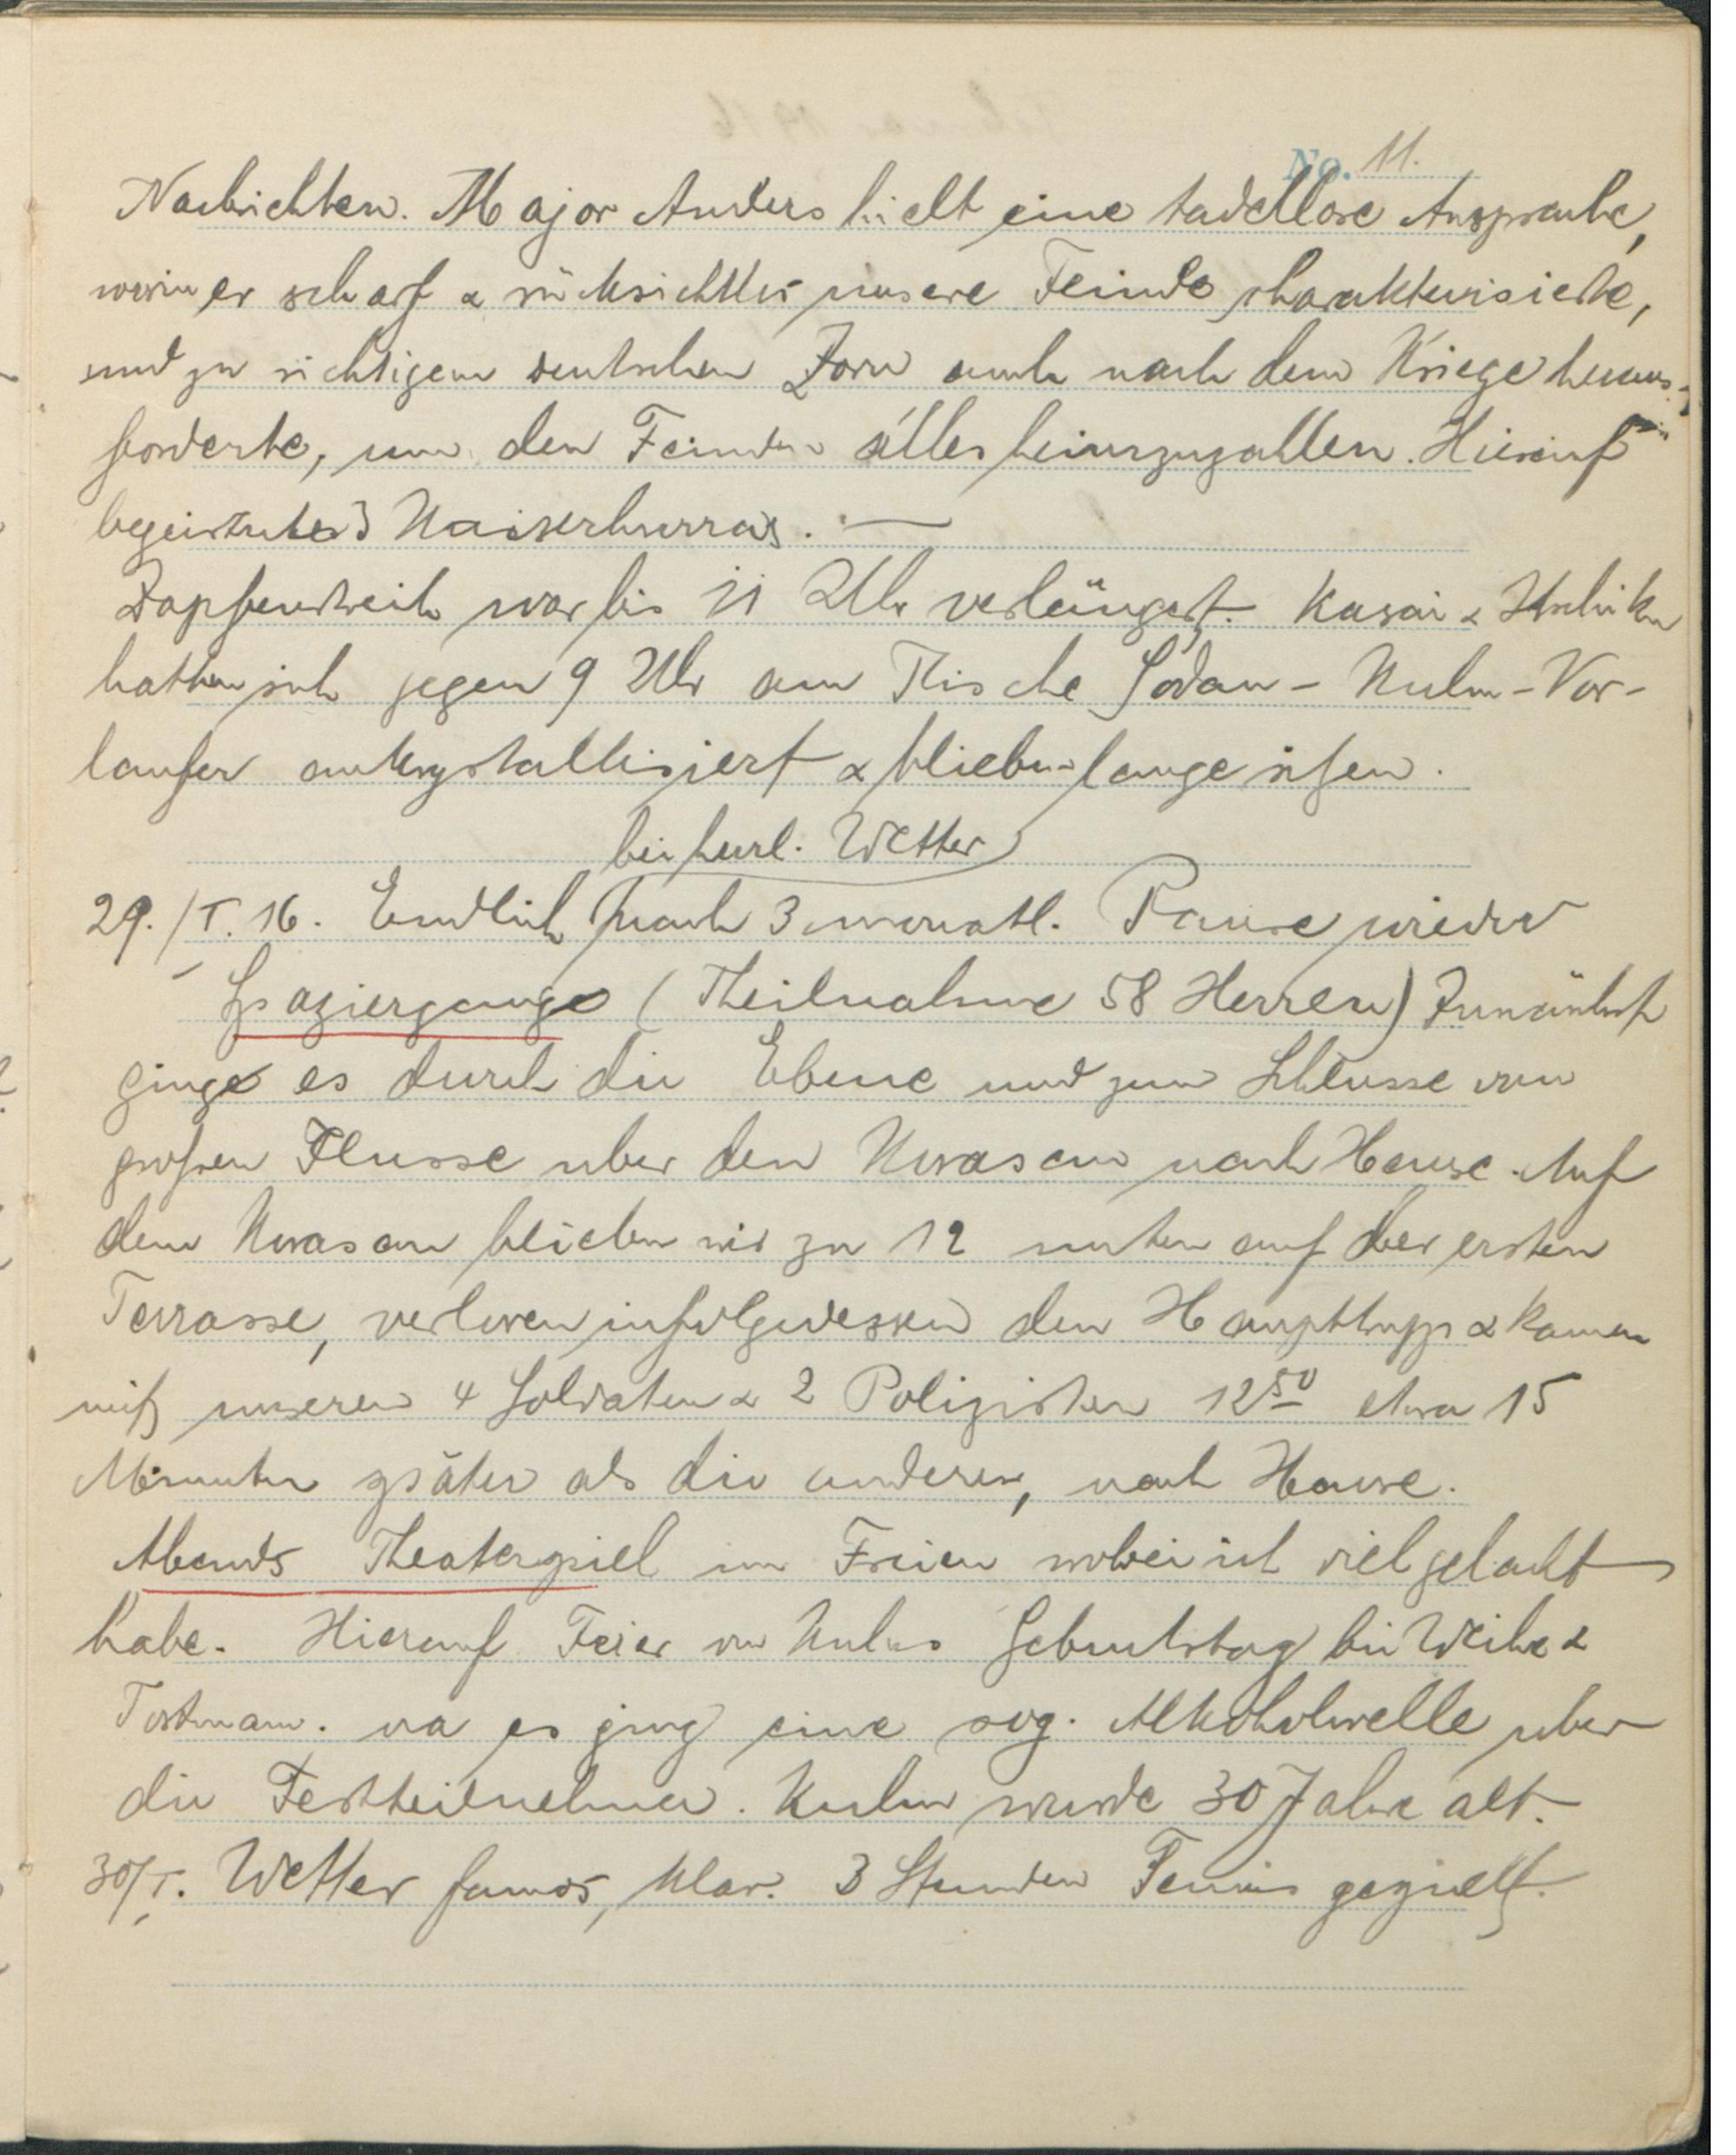 No. 11.
Nachrichten. Major Anders hielt eine tadellose Ansprache,
worin er scharf & rücksichtslos unsere Feinde charakterisierte,
und zu richtigem deutschen Zorn auch nach dem Kriege heraus-
forderte, um den Feinden alles heimzuzahlen. Hierauf
begeistertes Kaiserhurra.
Zapfenstreich war bis 11 Uhr verlängert. Kasai &
hatten sich gegen 9 Uhr am Tische Sodan - Kulm - Vor-
laufer ankrystallisiert & blieben lange sitzen.
bei herrl. Wetter
29./I. 16. Endlich nach 3 monatl. Pause wieder
Spaziergange (Theilnahme 58 Herren) Zunächst
ginge es durch die Ebene und zum Schlusse vom
grossen Flusse uber den Kurasan nach Hause. Auf
dem Kurasan blieben wir zu 12 unten auf der ersten
Terrasse, verloren infolgedessen den Haupttrupp & kamen
mit unseren 4 Soldaten & 2 Polizisten 12 50 etwa 15
Minuten später als die anderen, nach Hause.
Abends Theaterspiel im Freien wobei ich viel gelacht
habe. Hierauf Feier von Kulms Geburtstag bei &
es ging eine sog. Alkoholwelle uber
die Festteilnehmer. Kulm wurde 30 Jahre alt.
30/I. Wetter famos, klar. 3 Stunden Tennis gespielt.